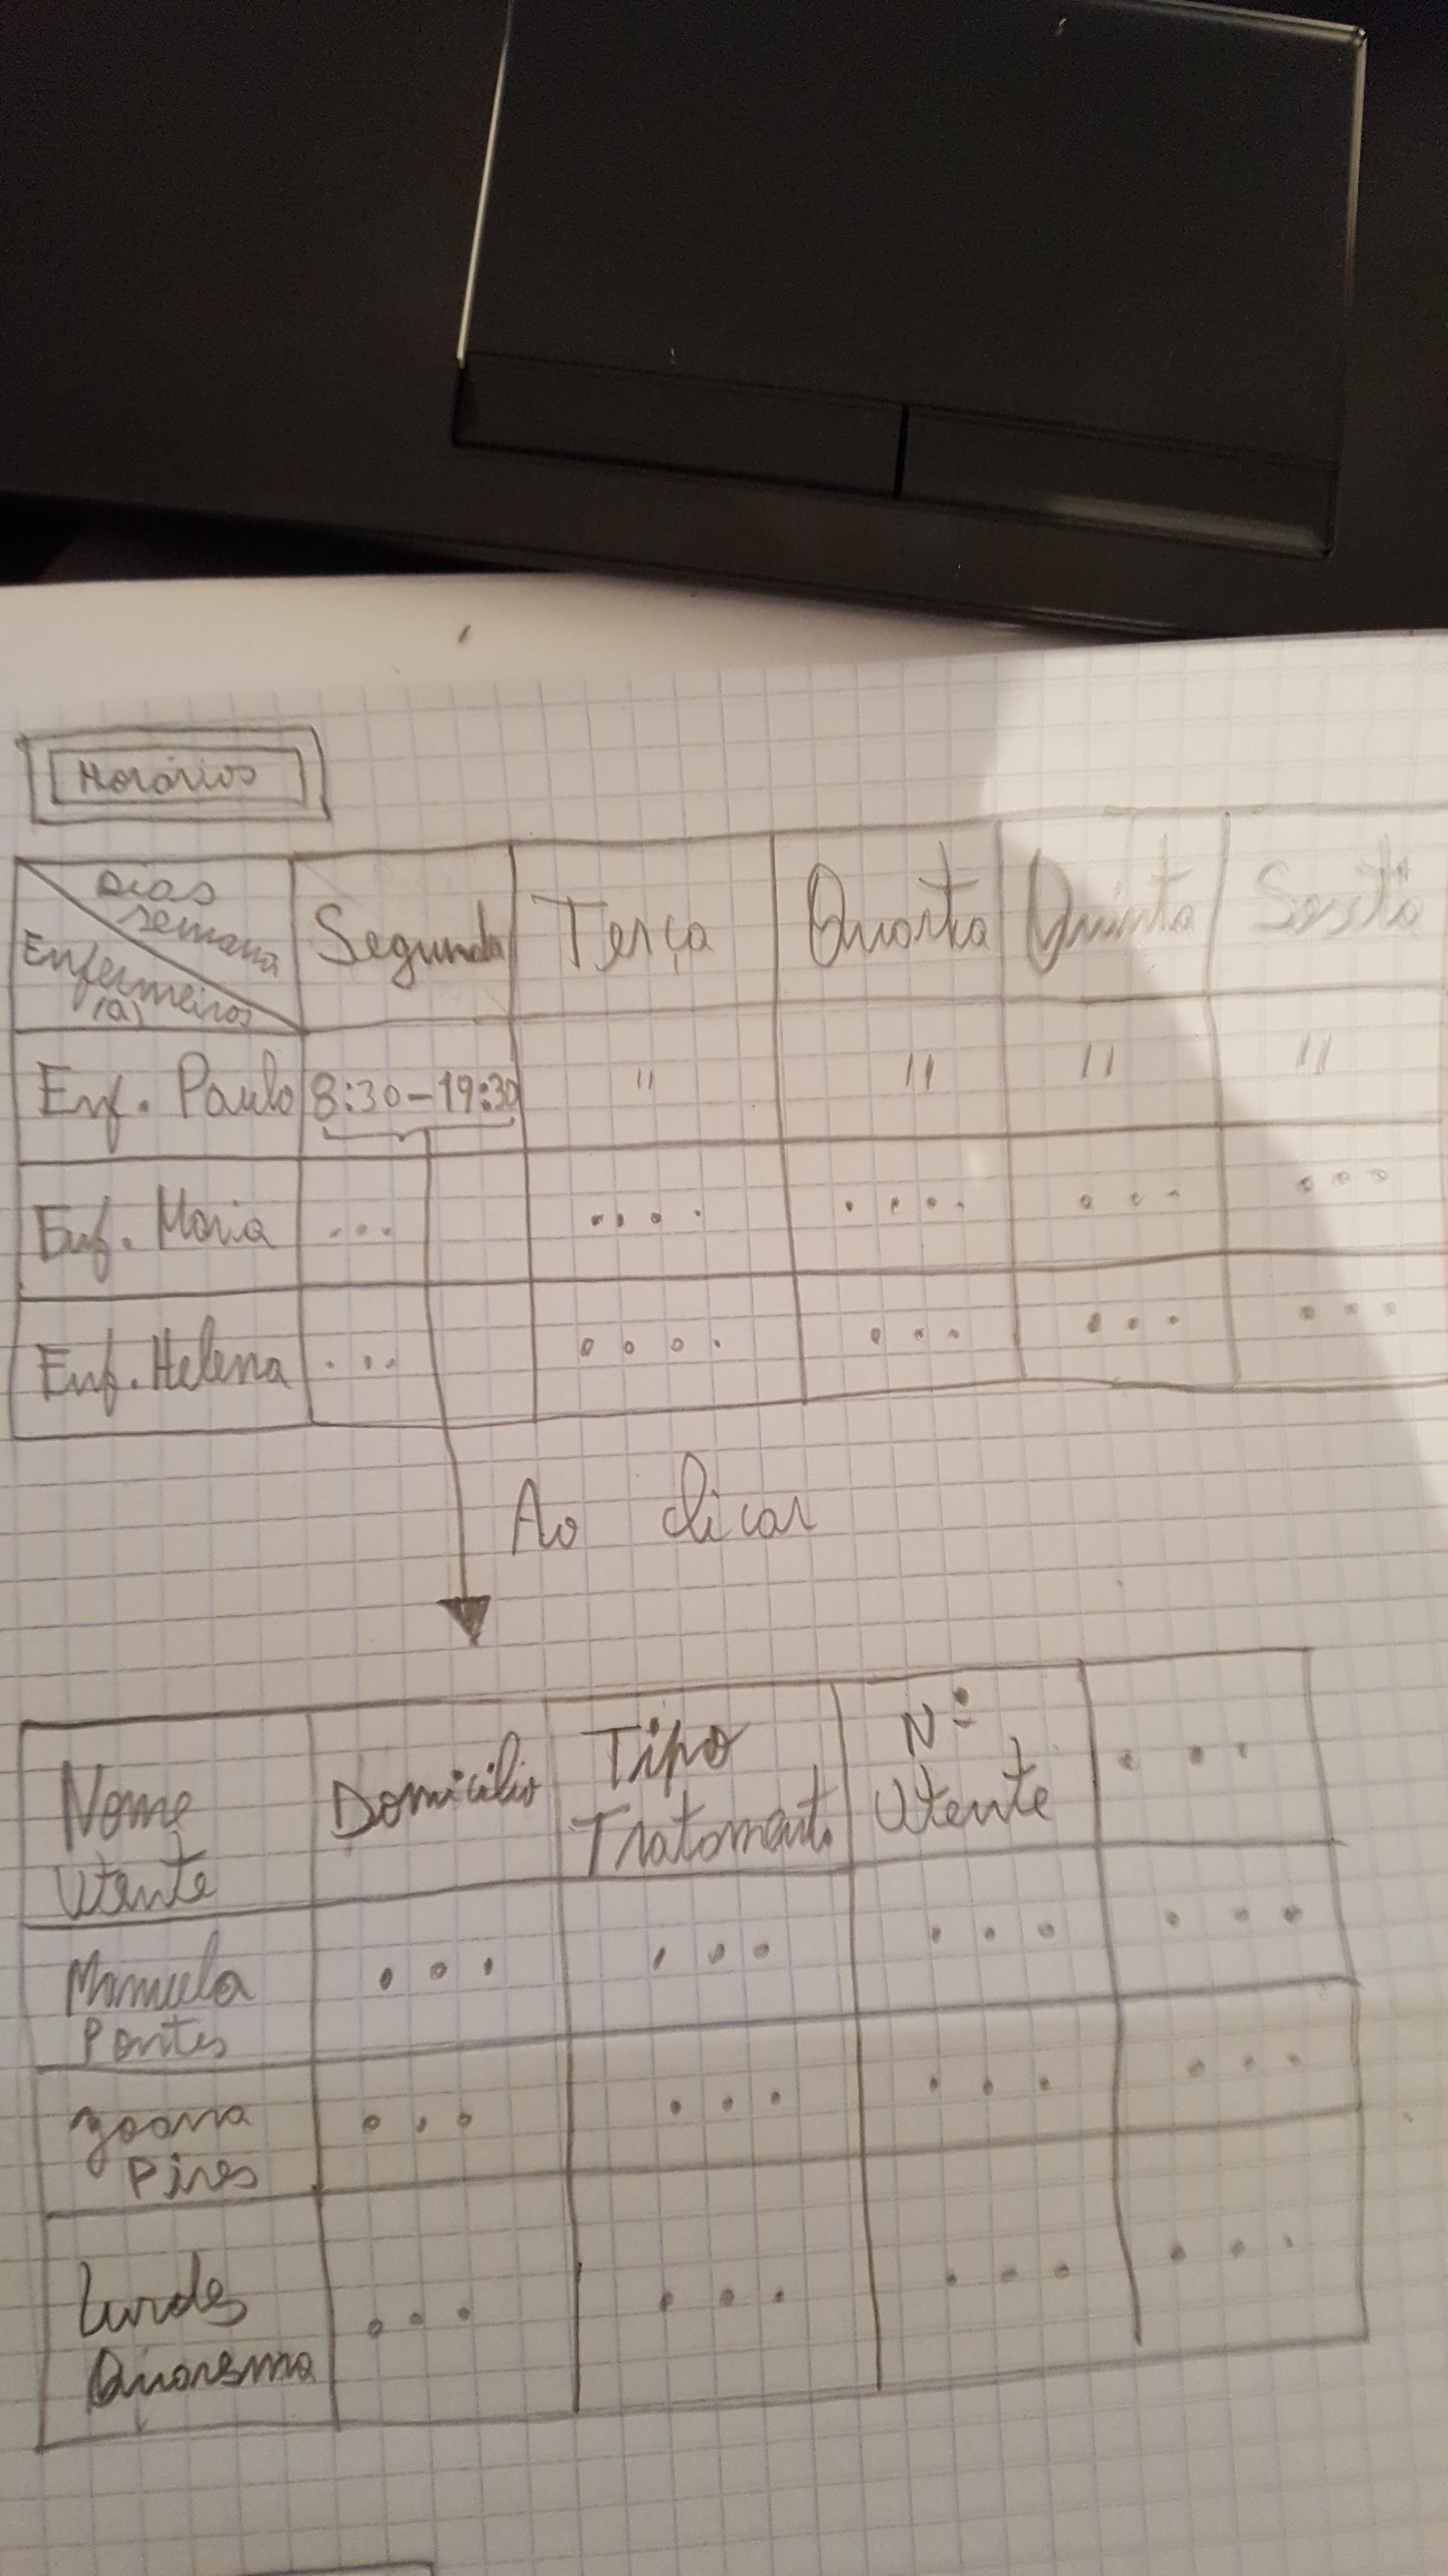 Horários
Dias semana Enfermeiros (a) Segunda Terça Quarta Quinta Sexta
Enf. Paulo 8:30-19:30 " " " "
Enf. Maria ... .... .... ... ...
Enf. Helena ... .... ... ... ...
Ao clicar
Nome Utente Domicilio Tipo Tratamento Nº Utente ...
Manuela Pontes ... ... ... ...
Joana Pires ... ... ... ...
Lurdes Quaresma ... ... ... ...